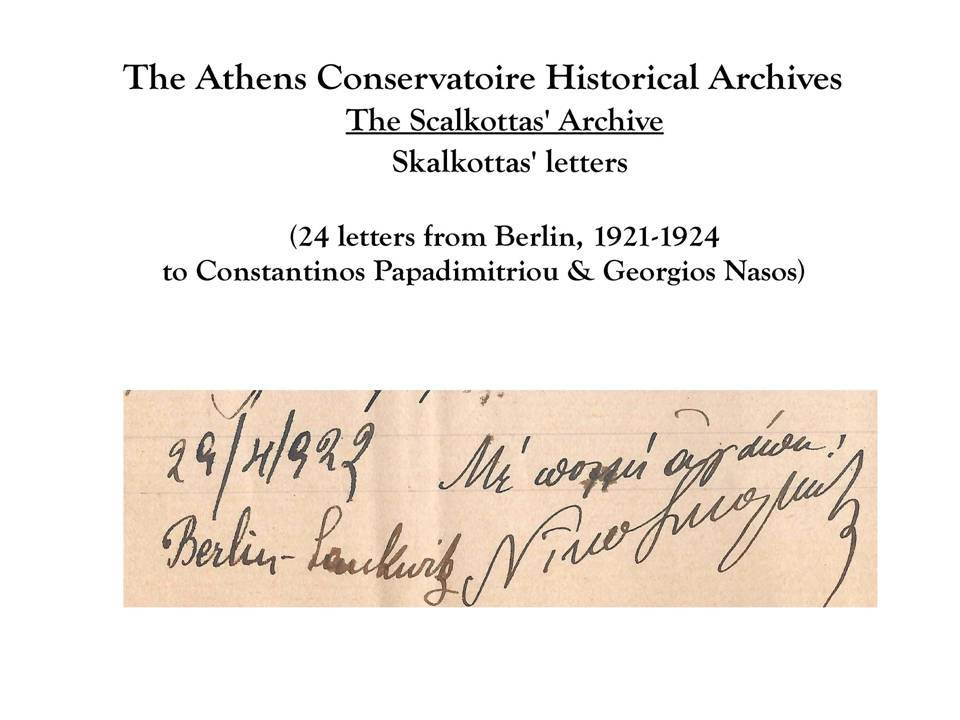 The Athens Conservatoire Historical Archives
The Scalkottas' Archive
Skalkottas' letters
(24 letters from Berlin, 1921-1924
to Constantinos Papadimitriou & Georgios Nasos)
29/4/922 Μέ πολλή ἀγάπη!
Berlin-Lankwitz Νίκος Σκαλκώτας